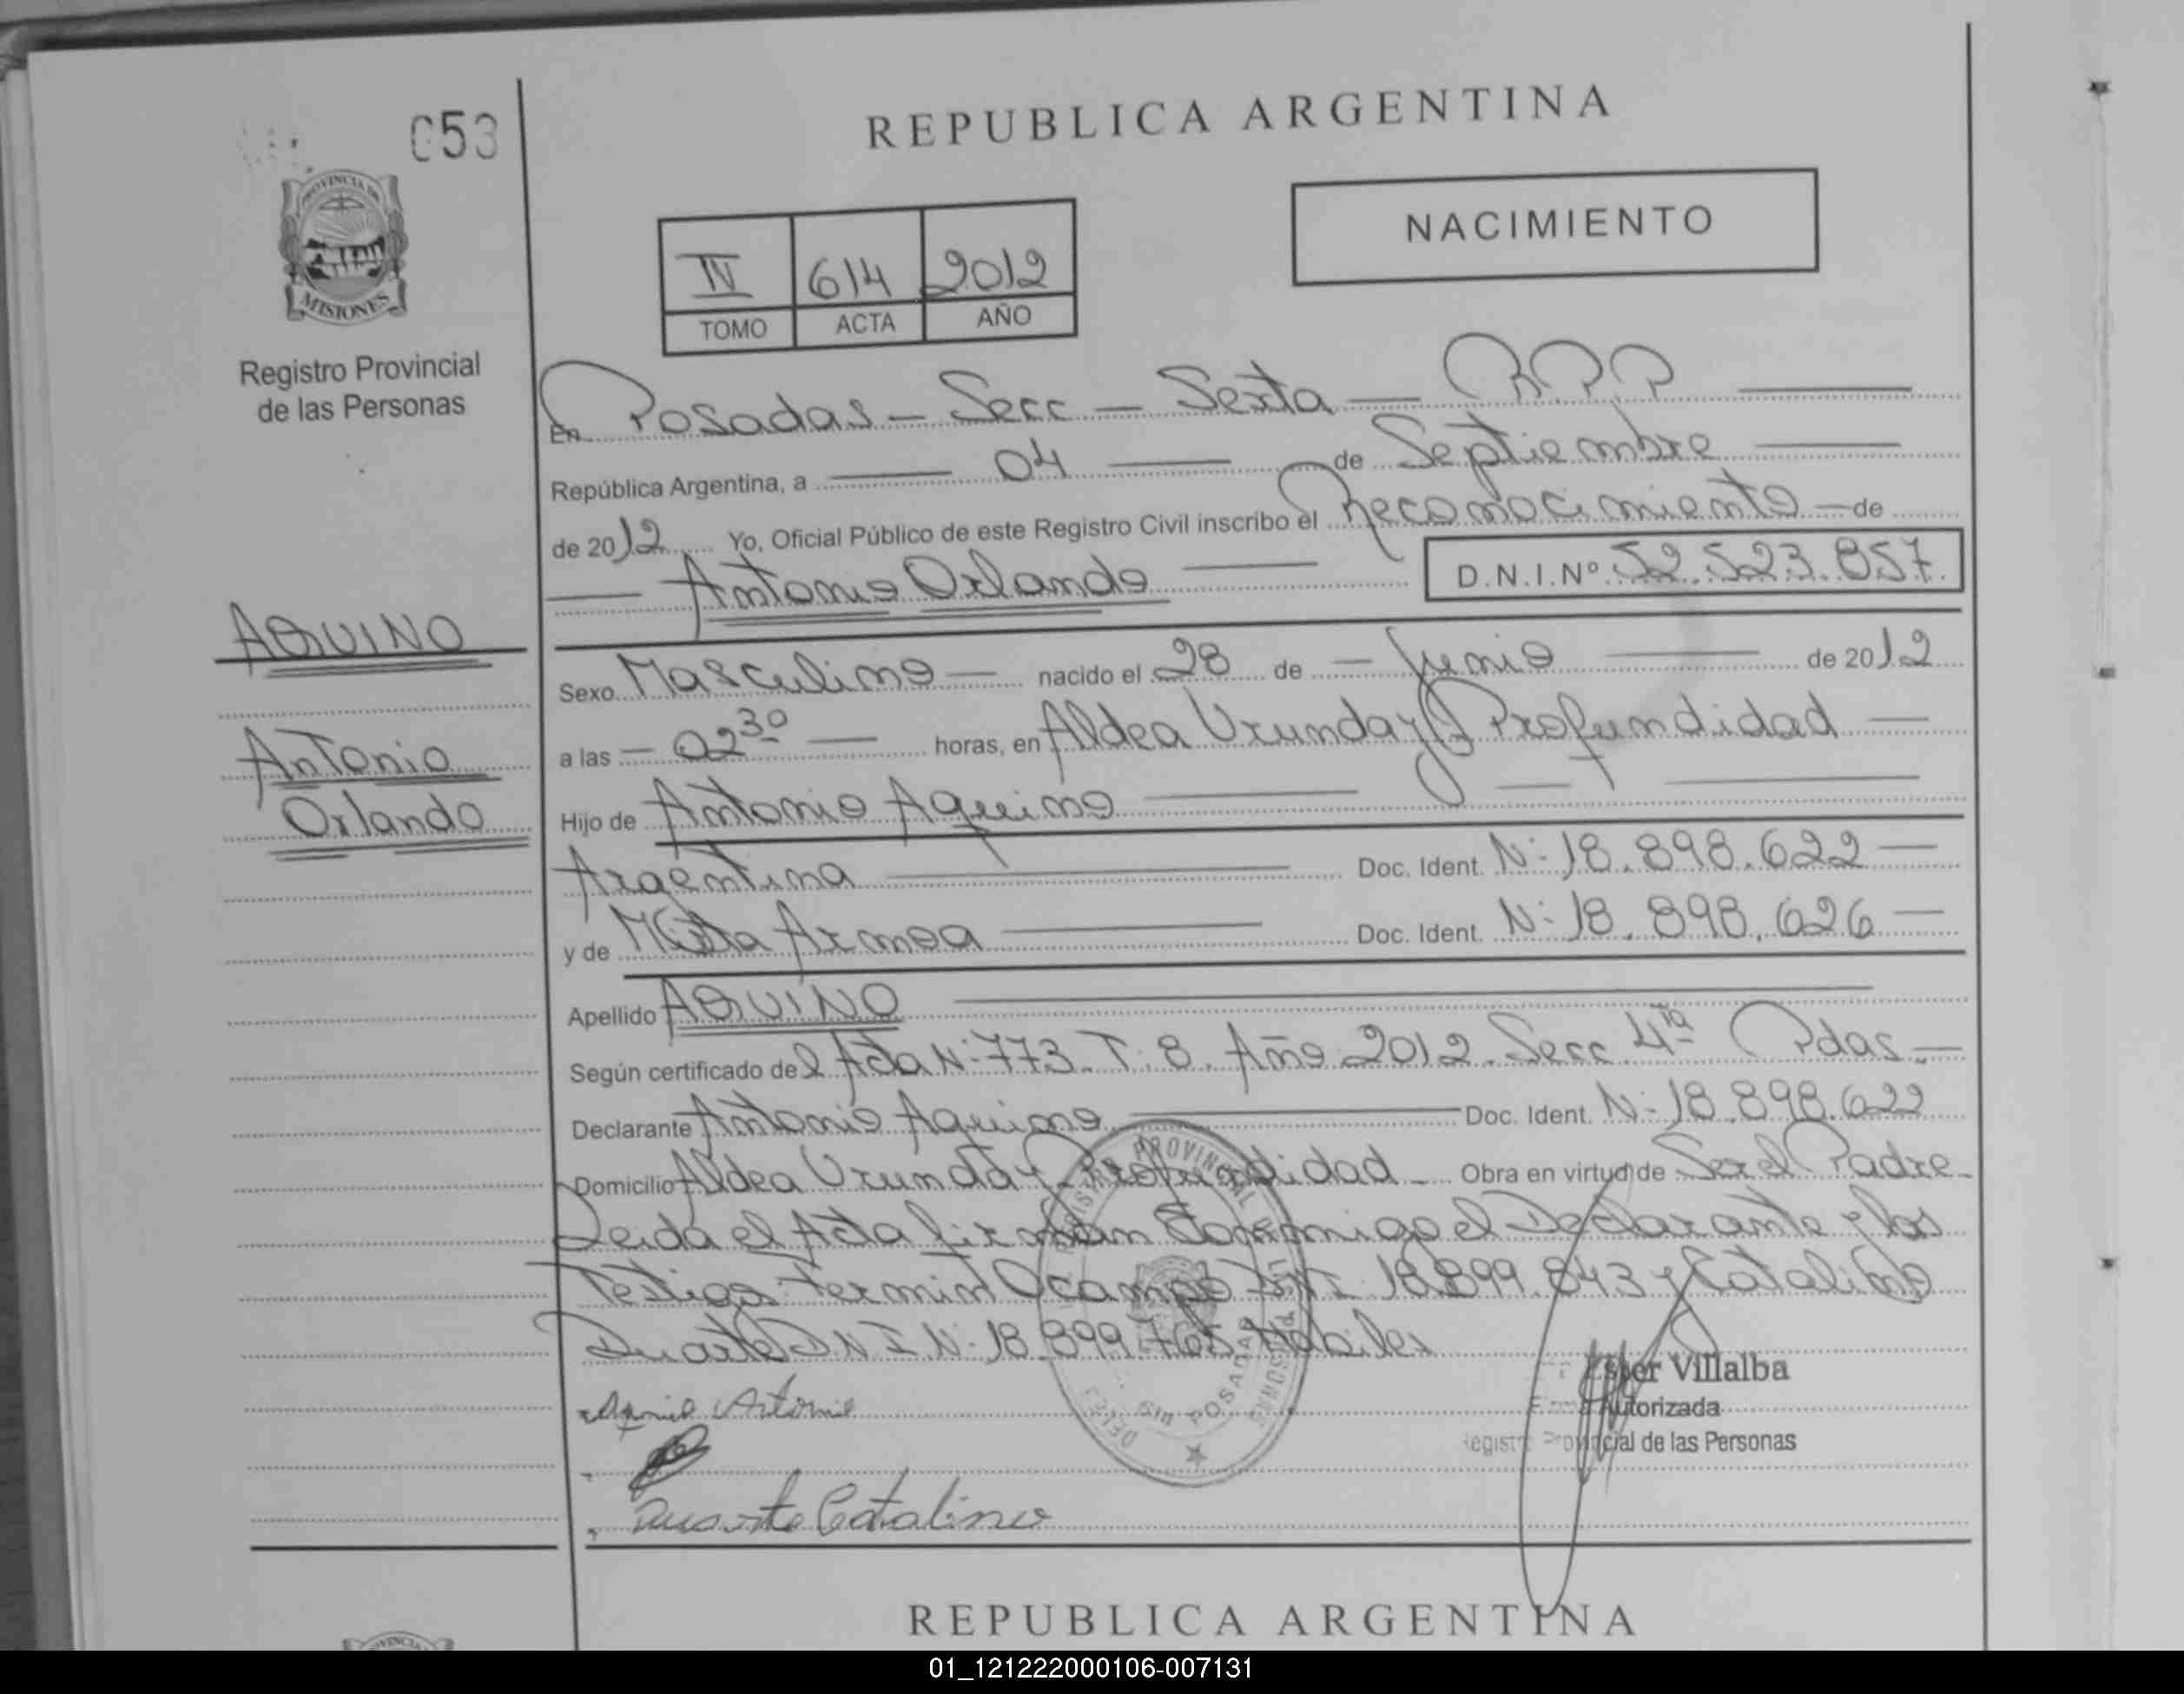 053
REPUBLICA ARGENTINA
PROVINCIA DE
MISIONES
NACIMIENTO
IV 614 2012
TOMO ACTA AÑO
Registro Provincial
de las Personas
En Posadas - Secc - Sexta - R P P
República Argentina, a 04 de Septiembre
de 2012 Yo, Oficial Público de este Registro Civil inscribo el Reconocimiento - de
Antonio Orlando D.N.I.Nº 52.523.857
AQUINO
Antonio
Orlando
Sexo Masculino - nacido el 28 de - Junio de 2012
a las - 02 30 - horas, en Aldea Urunday Profundidad
Hijo de Antonio Aquino
Argentina Doc. Ident. N: 18.898.622
y de Armoa Doc. Ident. N: 18.898.626
Apellido AQUINO
Según certificado del Acta N: 773. T: 8. Año 2012. Secc 4ta Pdas.
Declarante Antonio Aquino Doc. Ident. N: 18.898.622
Domicilio Aldea Urunday Profundidad Obra en virtud de Ser el Padre
Leida el Acta firman Conmigo el Declarante y los
Testigos Fermin Ocampo DNI 18.899.843 y Catalino
Duarte DNI N: 18.899.765 Habiles
Antonio
Duarte Catalino
PROVINCIAL
POSADAS
MISIONES
Ester Villalba
Firma Autorizada
Registro Provincial de las Personas
REPUBLICA ARGENTINA
01_121222000106-007131